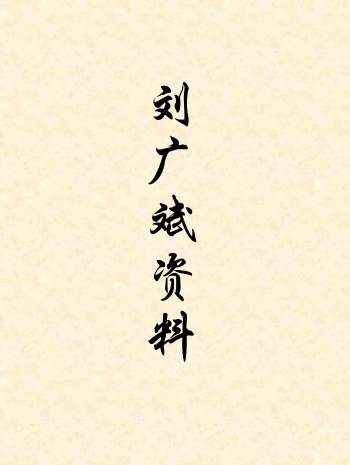 刘广斌资料